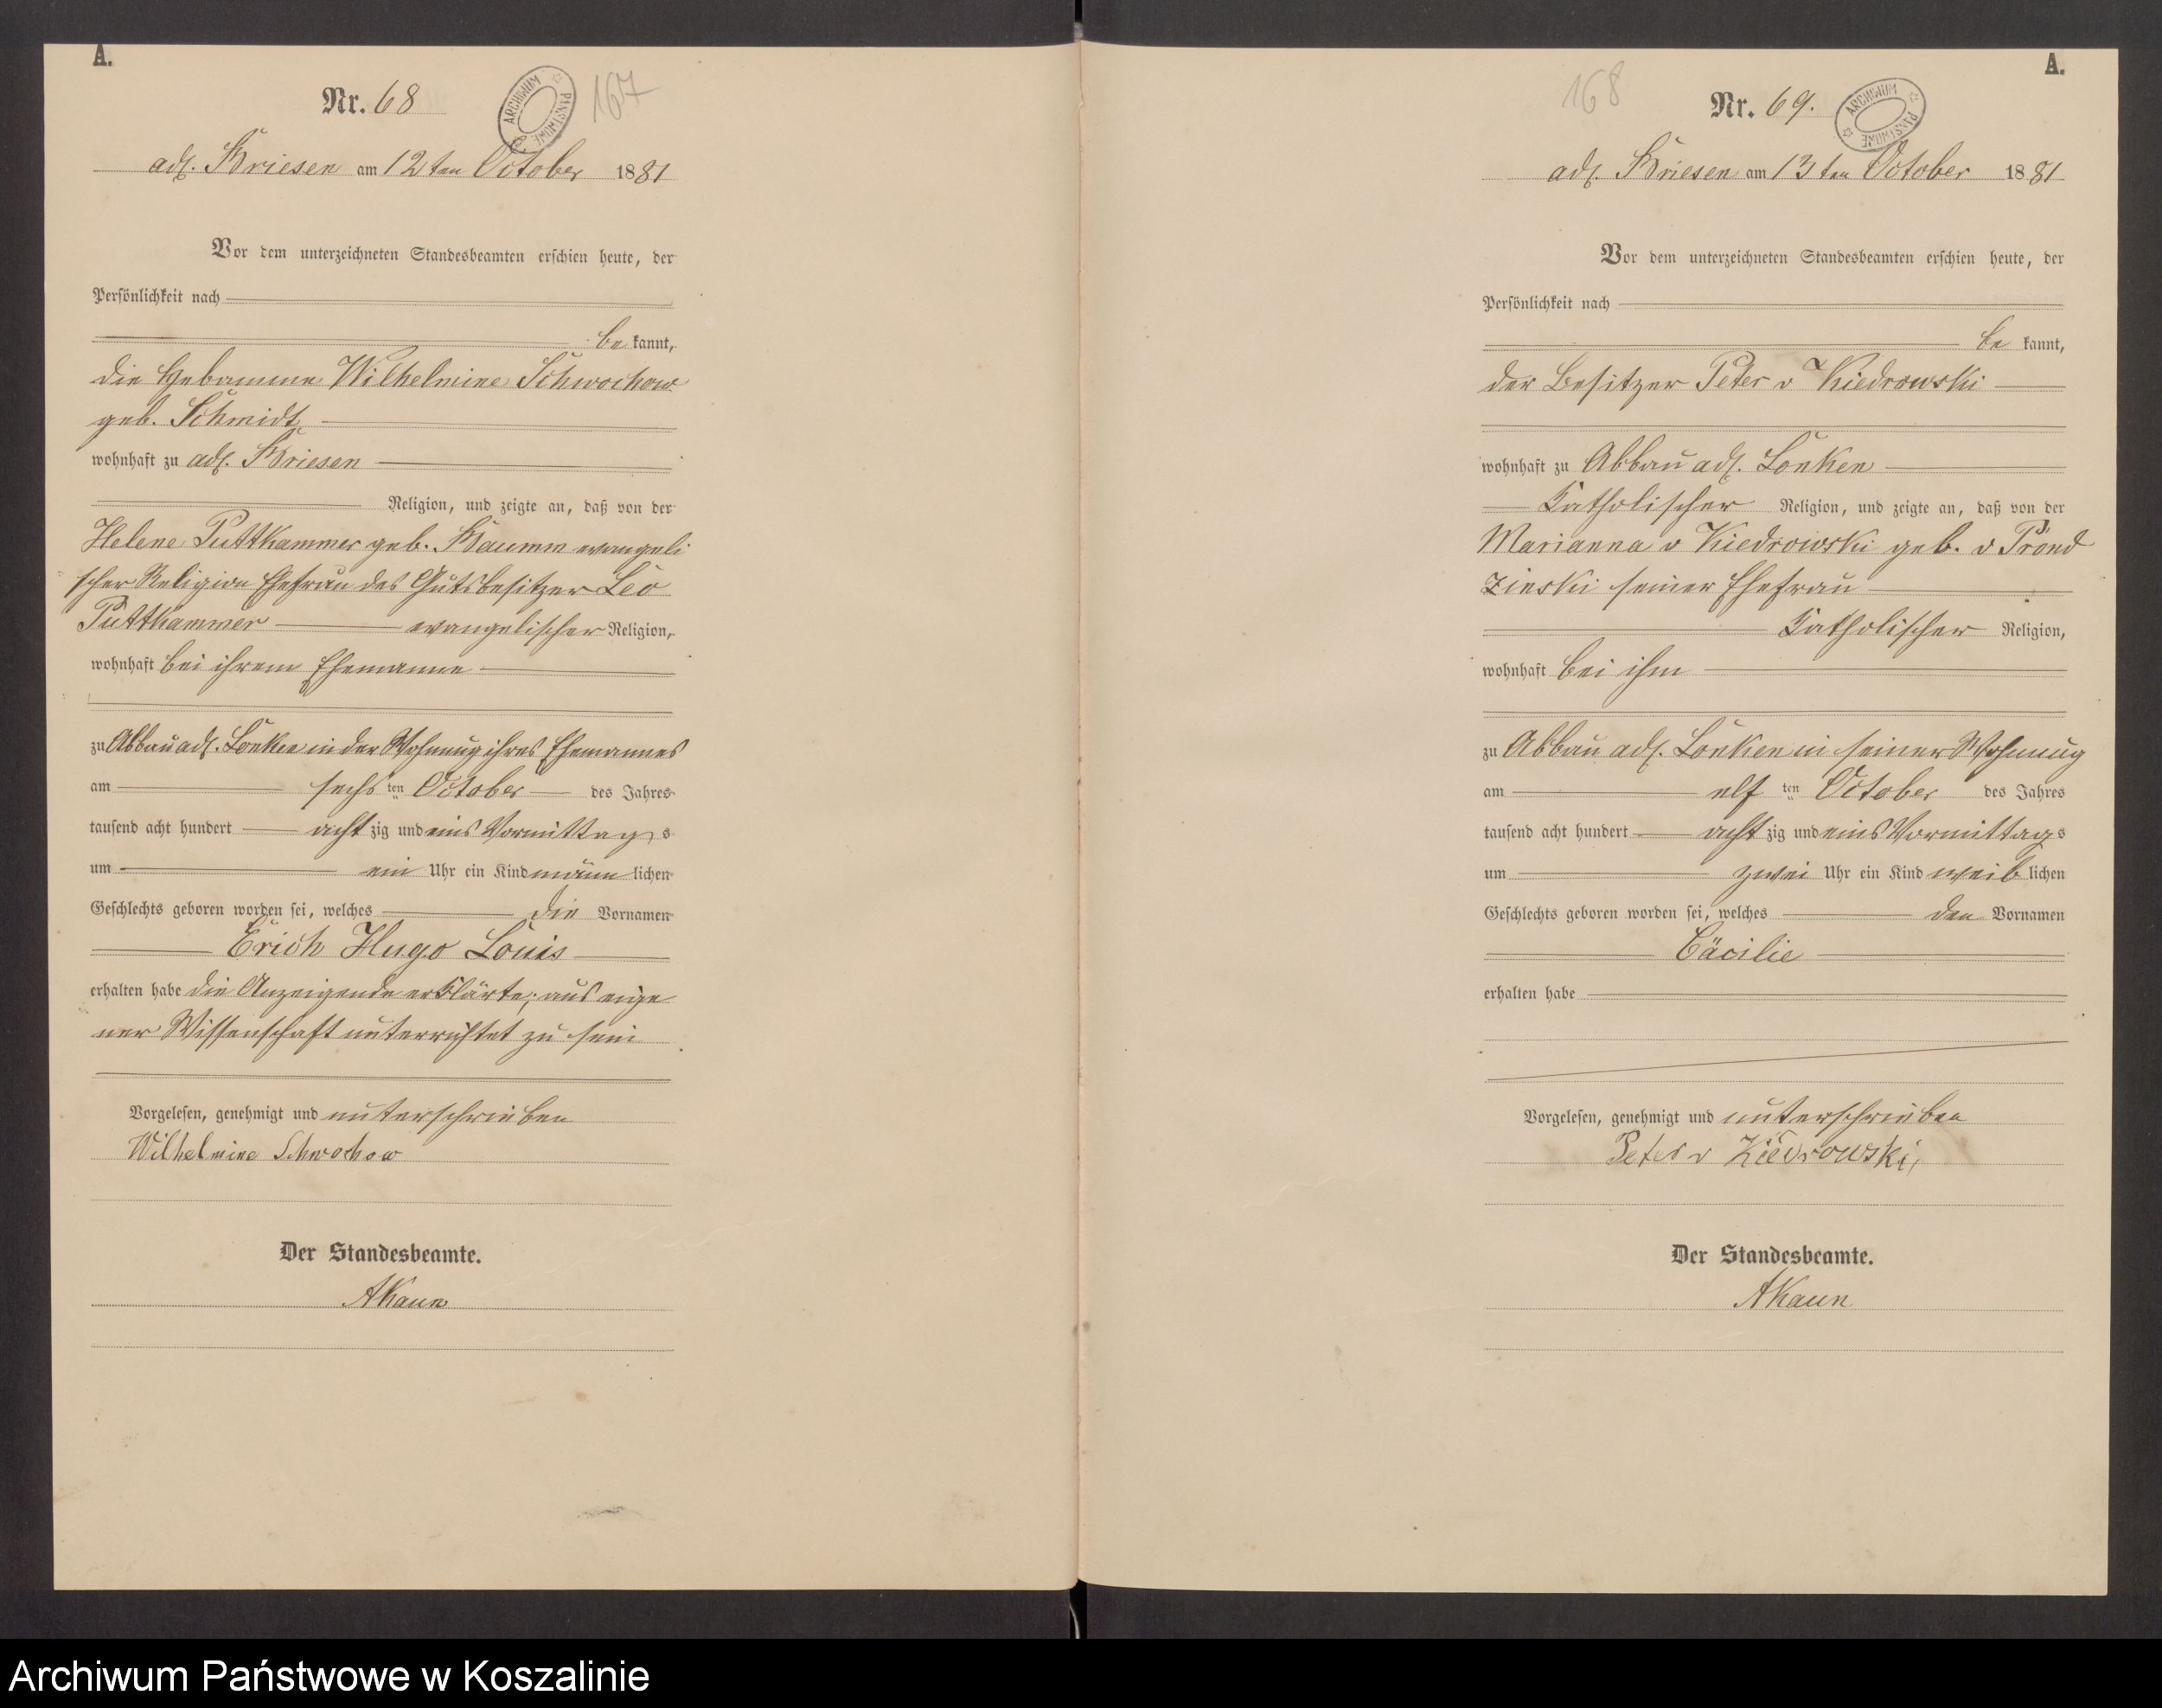 A.
Nr. 68
ARCHIWUM PAŃSTWOWE
167
adl. Briesen am 12ten October 1881
Vor dem unterzeichneten Standesbeamten erschien heute, der
Persönlichkeit nach
be kannt,
die Hebamme Wilhelmine Schwochow
geb. Schmidt
wohnhaft zu adl. Briesen
Religion, und zeigte an, daß von der
Helene Puttkammer geb. Baumm evangeli
scher Religion Ehefrau des Gutsbesitzer Leo
Puttkammer evangelischer Religion,
wohnhaft bei ihrem Ehemanne
zu Abbau adl. Lonken in der Wohnung ihres Ehemannes
am sechs ten October des Jahres
tausend acht hundert acht zig und eins Vormittags
um ein Uhr ein Kind männ lichen
Geschlechts geboren worden sei, welches die Vornamen
Erich Hugo Louis
erhalten habe die Anzeigende erklärte, aus eige
ner Wissenschaft unterrichtet zu sein
Vorgelesen, genehmigt und unterschrieben
Wilhelmine Schwochow
Der Standesbeamte.
AKaun
A.
168
Nr. 69.
ARCHIWUM PAŃSTWOWE
adl. Briesen am 13ten October 1881
Vor dem unterzeichneten Standesbeamten erschien heute, der
Persönlichkeit nach
be kannt,
der Besitzer Peter v Kiedrowski
wohnhaft zu Abbau adl. Lonken
Katholischer Religion, und zeigte an, daß von der
Marianna v Kiedrowski geb. v Prond
zinski seiner Ehefrau
Katholischer Religion,
wohnhaft bei ihm
zu Abbau adl. Lonken in seiner Wohnung
am elf ten October des Jahres
tausend acht hundert acht zig und eins Vormittags
um zwei Uhr ein Kind weib lichen
Geschlechts geboren worden sei, welches den Vornamen
Cäcilie
erhalten habe
Vorgelesen, genehmigt und unterschrieben
Peter v Kiedrowski,
Der Standesbeamte.
AKaun
Archiwum Państwowe w Koszalinie